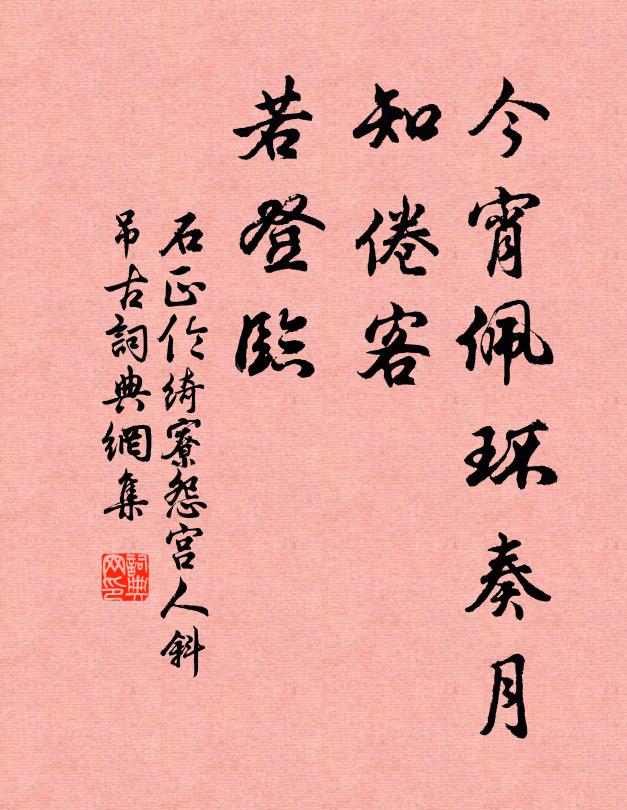 今宵佩环奏月
知倦客
若登臨
石正伦绮寮怨宫人斜
吊古詞典網集
詞典
网印